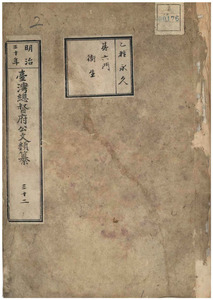 2
明治
三十年
臺灣總督府公文類纂
三十二
乙種永久
第六門
衛生